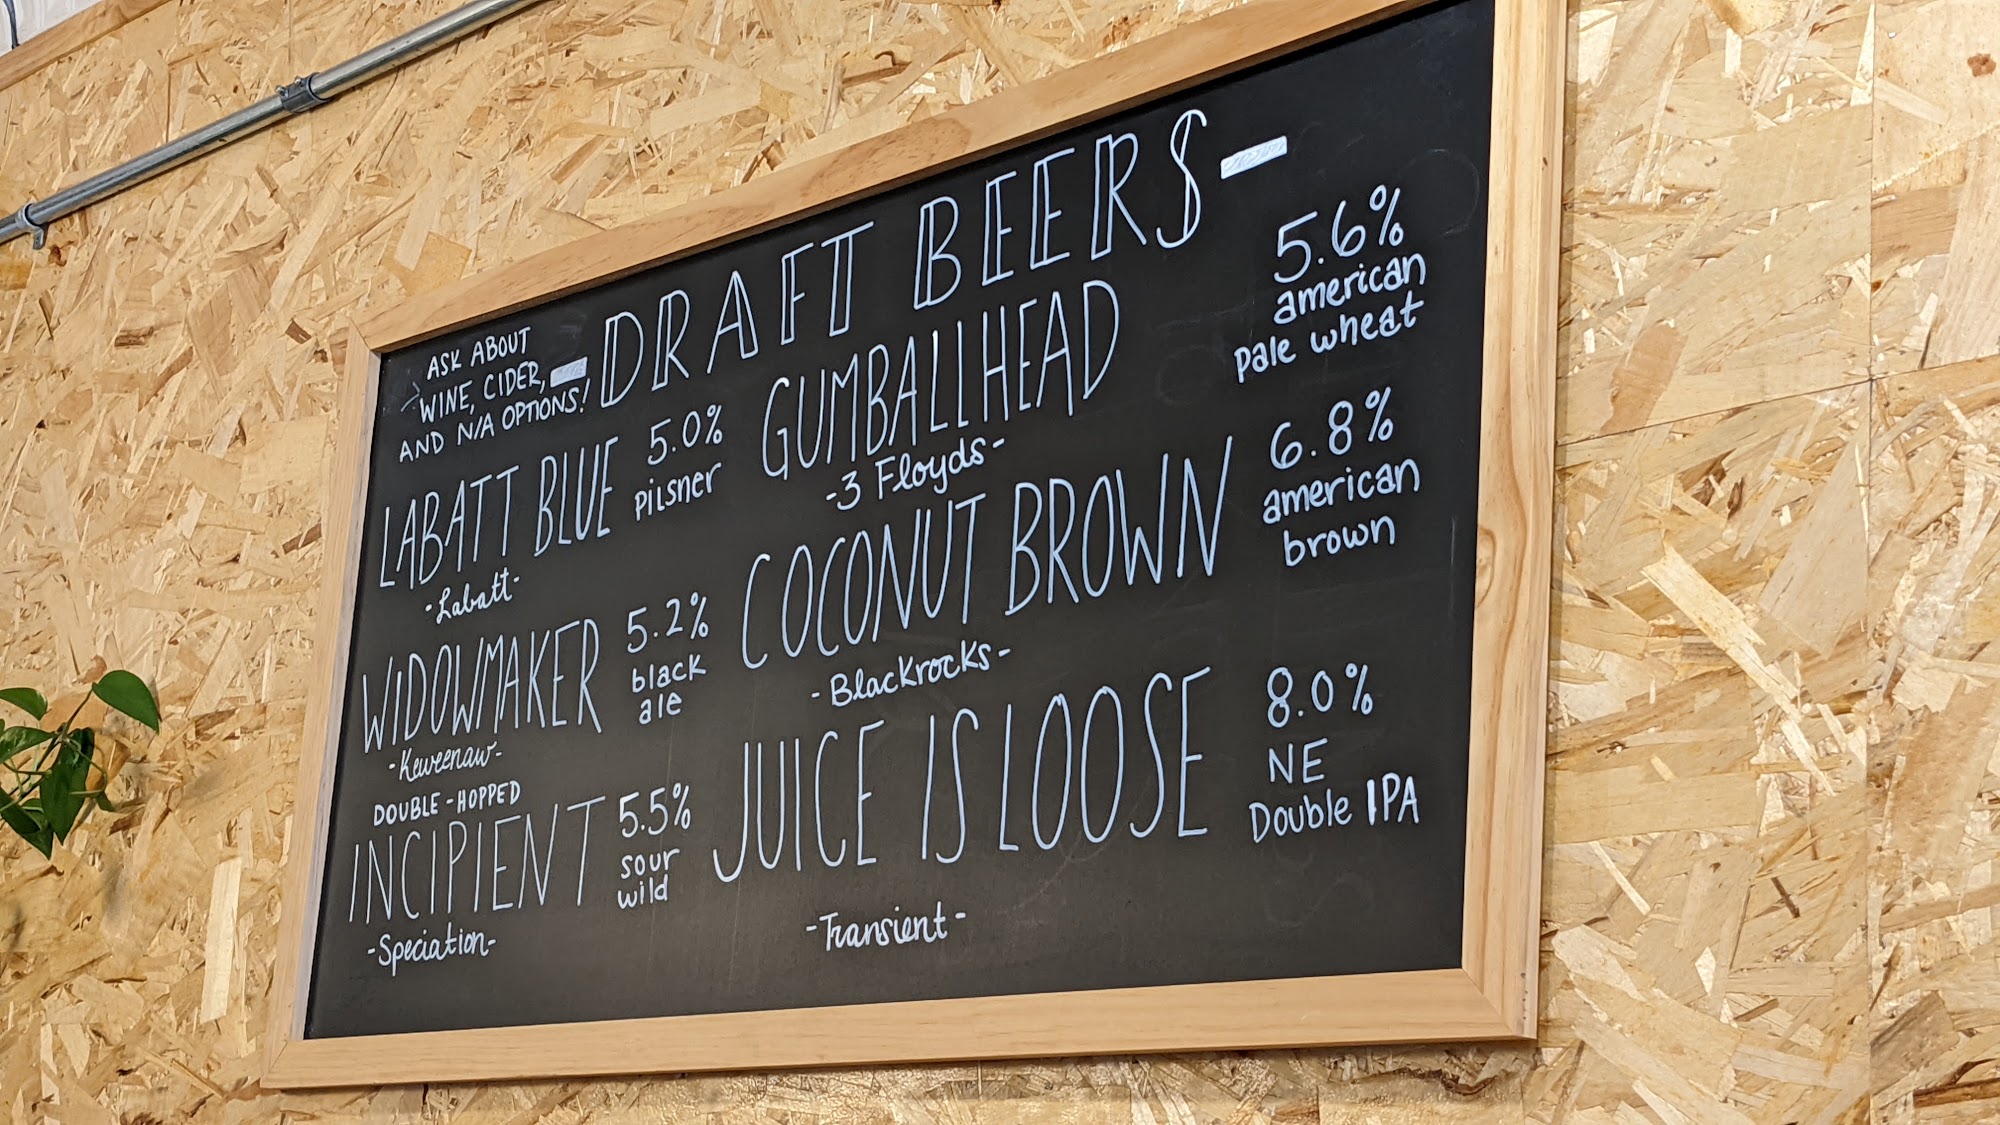 DRAFT BEERS
ASK ABOUT
WINE, CIDER,
AND N/A OPTIONS!
LABATT BLUE
5.0%
pilsner
-Labatt-
WIDOWMAKER
5.2%
black
ale
-Keweenaw-
DOUBLE-HOPPED
INCIPIENT
5.5%
sour
wild
-Speciation-
GUMBALLHEAD
5.6%
american
pale wheat
-3 Floyds-
COCONUT BROWN
6.8%
american
brown
-Blackrocks-
JUICE IS LOOSE
8.0%
NE
Double IPA
-Transient-